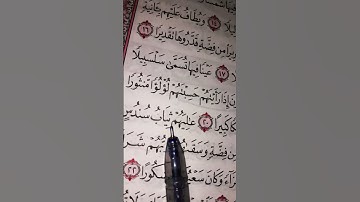 لًا ١٤ وَيُطَافُ عَلَيْهِم بِـَٔانِيَةٍ
يرَا۠ مِن فِضَّةٍ قَدَّرُوهَا تَقْدِيرًا ١٦
١٧ عَيْنًا فِيهَا تُسَمَّىٰ سَلْسَبِيلًا
إِذَا رَأَيْتَهُمْ حَسِبْتَهُمْ لُؤْلُؤًا مَّنثُورًا
كًا كَبِيرًا ٢٠ عَٰلِيَهُمْ ثِيَابُ سُندُسٍ
مِن فِضَّةٍ وَسَقَىٰهُمْ رَبُّهُمْ شَرَا
زَآءً وَكَانَ سَعْيُكُم مَّشْكُورًا ٢٢